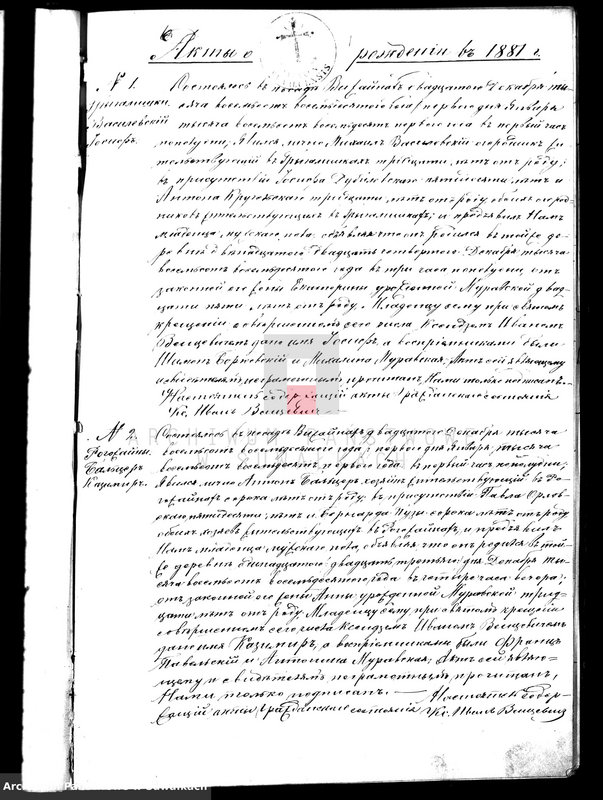 Акты о рожденіи въ 1881 г.
№ 1.
Василевскій
Іосифъ.
Состоялось въ посадѣ Вижайнахъ двадцатаго Декабря ты-
сяча восемьсотъ восемьдесятого года / перваго дня Января
тысяча восемьсотъ восемьдесятъ перваго года въ первый часъ
пополудни, Явился лично Михаилъ Василевскій огородникъ жи-
тельствующій въ тридцати лѣтъ отъ роду,
въ присутствіи Іосифа пятидесяти лѣтъ и
Антона тридцати лѣтъ отъ роду обоихъ огород-
никовъ жительствующихъ въ и предъявилъ Намъ
младенца мужскаго пола объявляя что онъ родился въ той же де-
ревнѣ двѣнадцатаго / двадцать четвертаго / Декабря тысяча
восемьсотъ восемьдесятого года въ три часа пополудни, отъ
законной его жены Екатерины урожденной Муравской двад-
цати пяти лѣтъ отъ роду. Младенцу сему при святомъ
крещеніи совершенномъ сего числа Ксендзомъ Иваномъ
Войцевичемъ дано имя Іосифъ, а воспріемниками были
Шимонъ и Михалина Муравская. Актъ сей явившему
и свидѣтелямъ неграмотнымъ прочитанъ, Нами только подписанъ.
Настоятель содержащій акты Гражданскаго состоянія
Кс. Иванъ Войцевичъ
№ 2.
Казимиръ.
Состоялось въ посадѣ Вижайнахъ двадцатаго Декабря тысяча
восемьсотъ восемьдесятого года / перваго дня Января тысяча
восемьсотъ восемьдесятъ перваго года въ первый часъ пополудни,
Явился лично Антонъ хозяинъ жительствующій въ
сорока лѣтъ отъ роду, въ присутствіи Павла
пятидесяти лѣтъ и сорока лѣтъ отъ роду
обоихъ хозяевъ жительствующихъ въ и предъявилъ
Намъ младенца мужскаго пола, объявляя что онъ родился въ той-
же деревнѣ одинадцатаго / двадцать третьяго / дня Декабря ты-
сяча восемьсотъ восемьдесятого года въ четыре часа вечера,
отъ законной его жены Анны урожденной Муравской трид-
цати лѣтъ отъ роду. Младенцу сему при святомъ крещеніи
совершенномъ сего числа Ксендзомъ Иваномъ Войцевичемъ
дано имя Казимиръ, а воспріемниками были Францъ
Павельскій и Антонина Муравская, Актъ сей явив-
шему и свидѣтелямъ неграмотнымъ прочитанъ,
Нами только подписанъ. — Настоятель содер-
жащій акты Гражданскаго состоянія Кс. Иванъ Войцевичъ
ARCHIWUM PAŃSTWOWE
W SUWAŁKACH